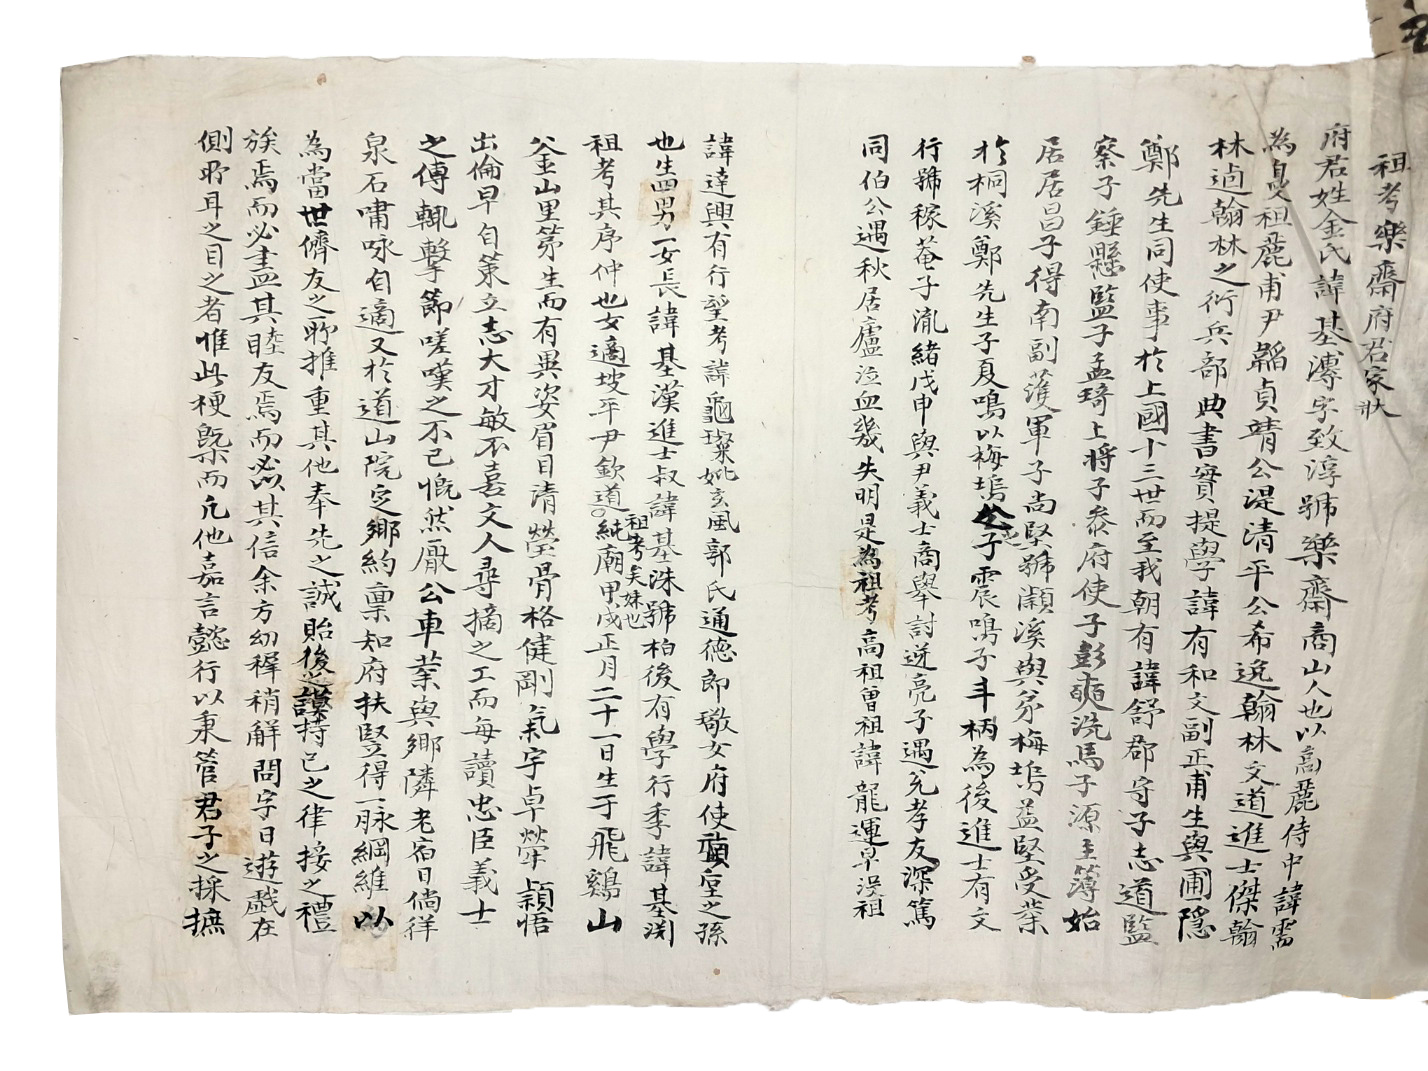 祖考樂齋府君家狀
府君姓金氏諱基漙字致淳號樂齋商山人也以高麗侍中諱需
為鼻祖麗甫尹鎰貞靖公湜清平公希逸翰林文道進士傑翰
林逌翰林之衍兵部典書實提學諱有和文副正甫生與圃隱
鄭先生同使事於上國十三世而至我朝有諱舒郡守子志道監
察子錘縣監子孟琦上將子叅府使子彭奭洗馬子源主簿始
居居昌子得南副護軍子尚堅號灝溪與弟梅塢益堅受業
於桐溪鄭先生子夏鳴以梅塢公子震鳴子斗柄為後進士有文
行號稼菴子胤緒戊申與尹義士商舉討逆亮子遇兊孝友深篤
同伯公遇秋居廬泣血幾失明是為祖考高祖曾祖諱龍運早沒祖
諱達興有行望考諱龜璨妣玄風郭氏通德郎璥女府使禛堂之孫
也生四男一女長諱基漢進士叔諱基洙號柏後有學行季諱基渕
祖考其序仲也女適坡平尹欽道純廟甲戌正月二十一日生于飛鷄山
祖考矣妹也
釜山里第生而有異姿眉目清瑩骨格健剛氣宇卓犖穎悟
出倫早自策立志大才敏不喜文人尋摘之工而每讀忠臣義士
之傳輒擊節嗟嘆之不已慨然厭公車業與鄉隣老宿日倘徉
泉石嘯咏自適又於道山院定鄉約稟知府扶竪得一脉綱維以
為當世儕友之所推重其他奉先之誠貽後之謨持己之律接之禮
族焉而必盡其睦友焉而必以其信余方幼穉稍解問字日遊戲在
側所耳之目之者惟此梗槩而凡他嘉言懿行以秉管君子之採摭